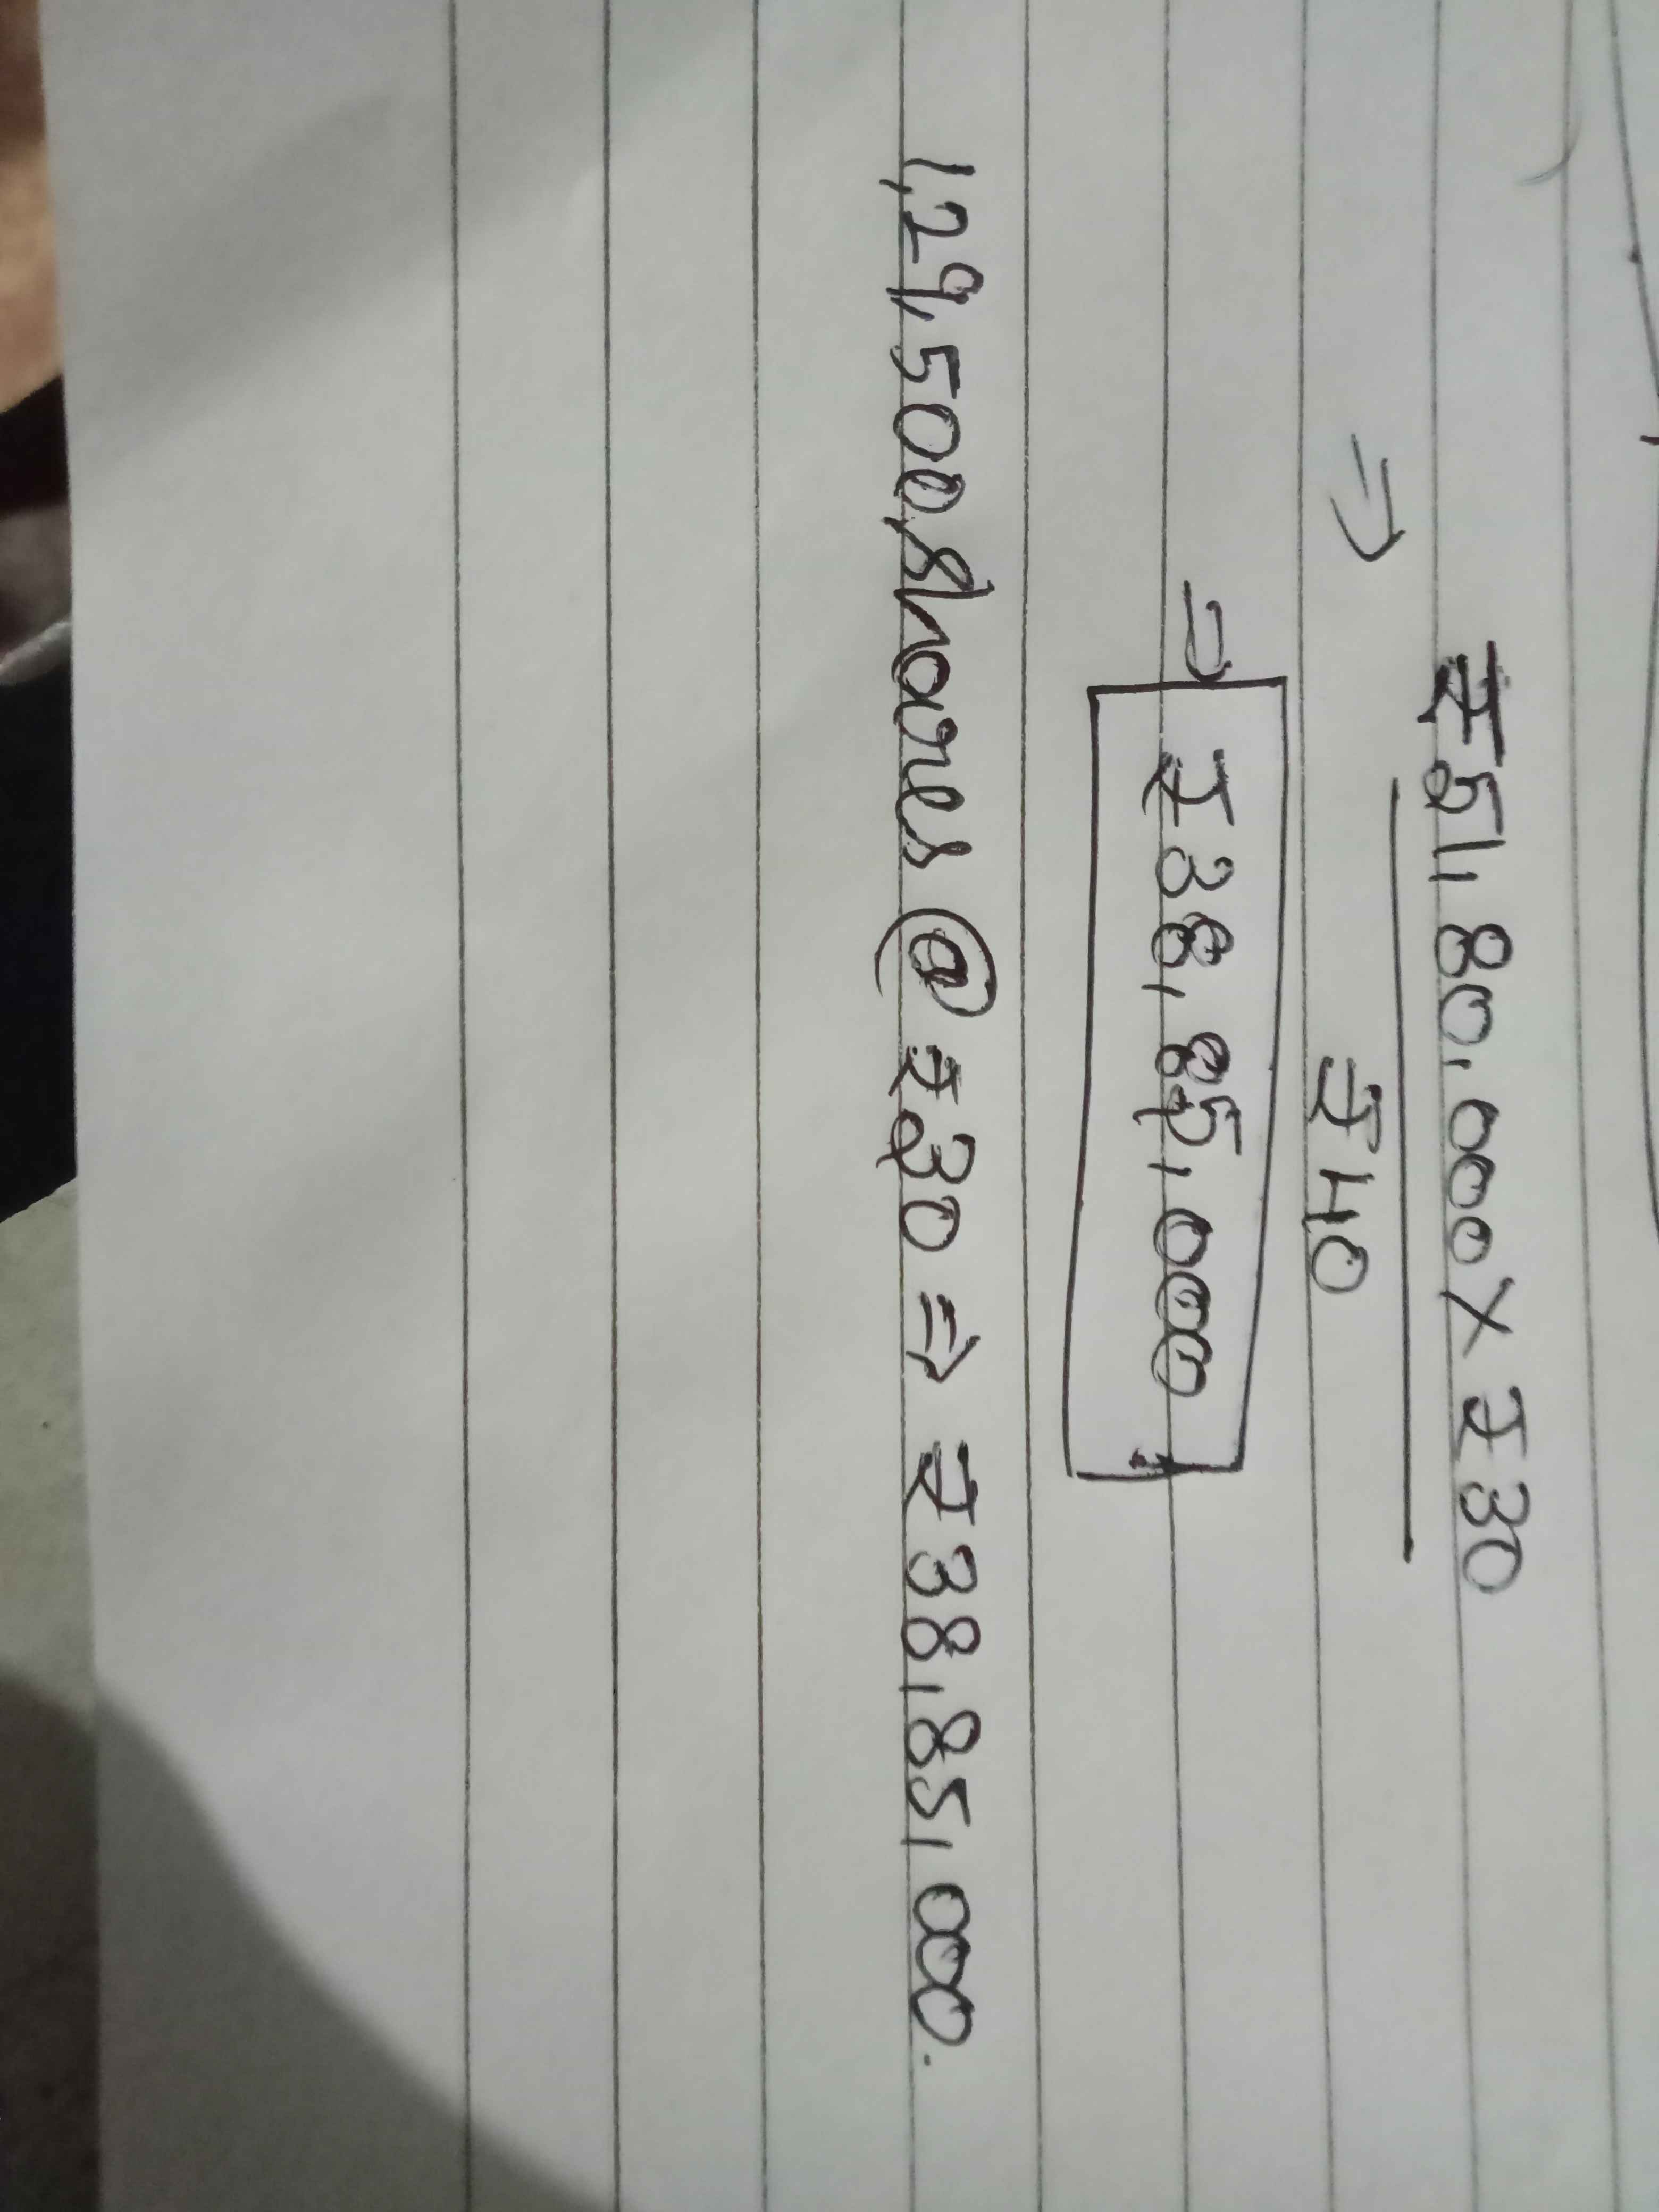 ₹51,80,000 X ₹30
⇒
₹40
⇒ ₹38,85,000
1,29,500 shares @ ₹30 ⇒ ₹38,85,000.